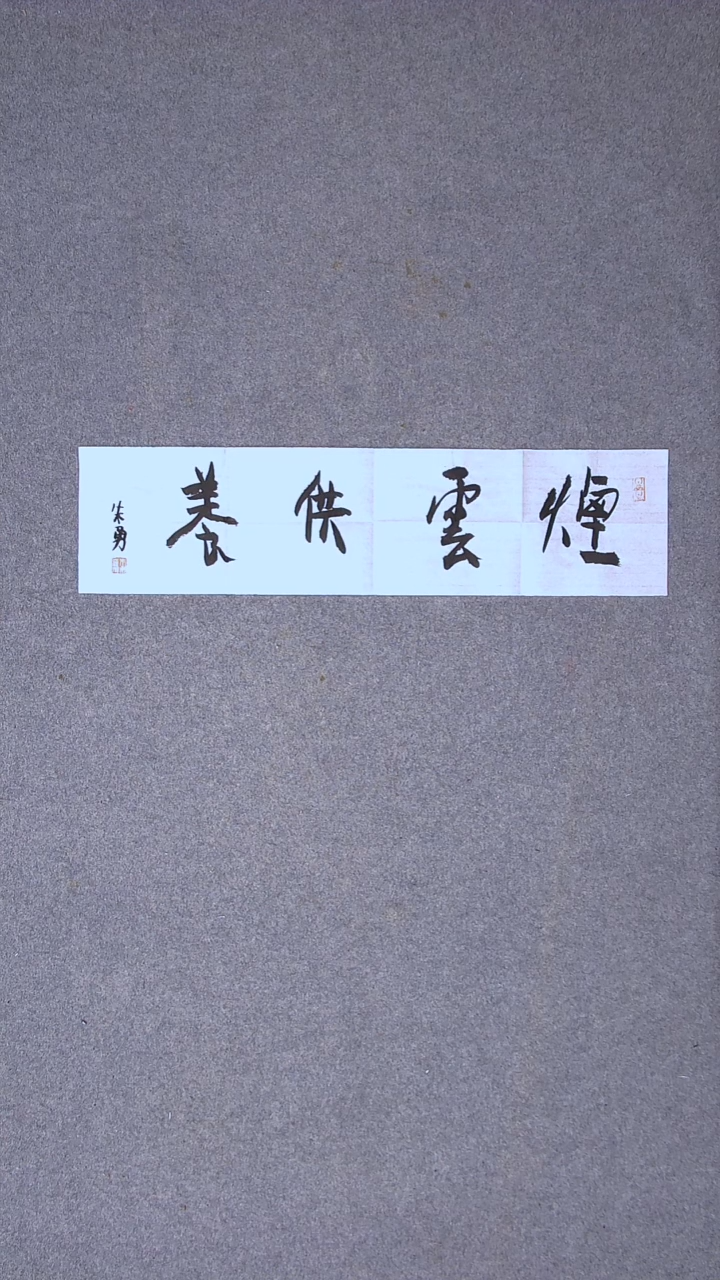 煙雲供養
朱勇